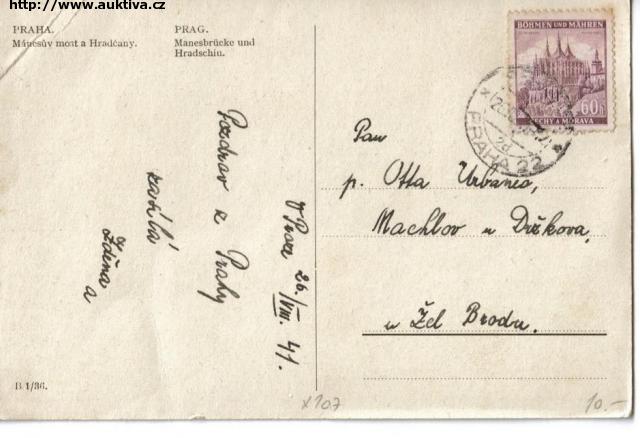 http://www.auktiva.cz
PRAHA.
Mánesův most a Hradčany.
PRAG.
Manesbrücke und
Hradschin.
BÖHMEN UND MÄHREN
60h
ČECHY A MORAVA
PRAHA 22
2d
V Praze 26./VIII. 41.
Pozdrav z Prahy
zasílá
Zdena
a
Pan
p. Otta Urbanec,
Machlov u Držkova,
u Žel Brodu.
B 1/36.
x107
10.-